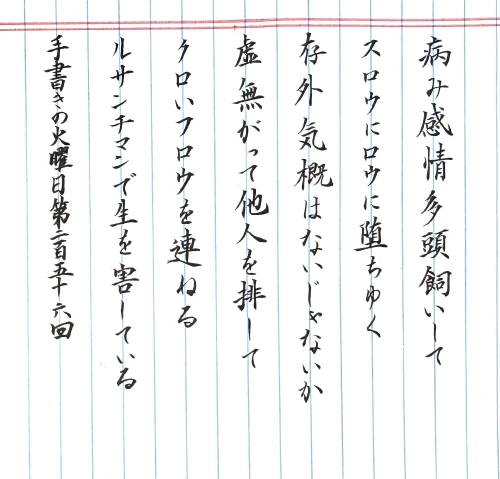 病み感情多頭飼いして
スロウにロウに堕ちゆく
存外気概はないじゃないか
虚無がって他人を排して
クロいフロウを連ねる
ルサンチマンで生を害している
手書きの火曜日第二百五十六回